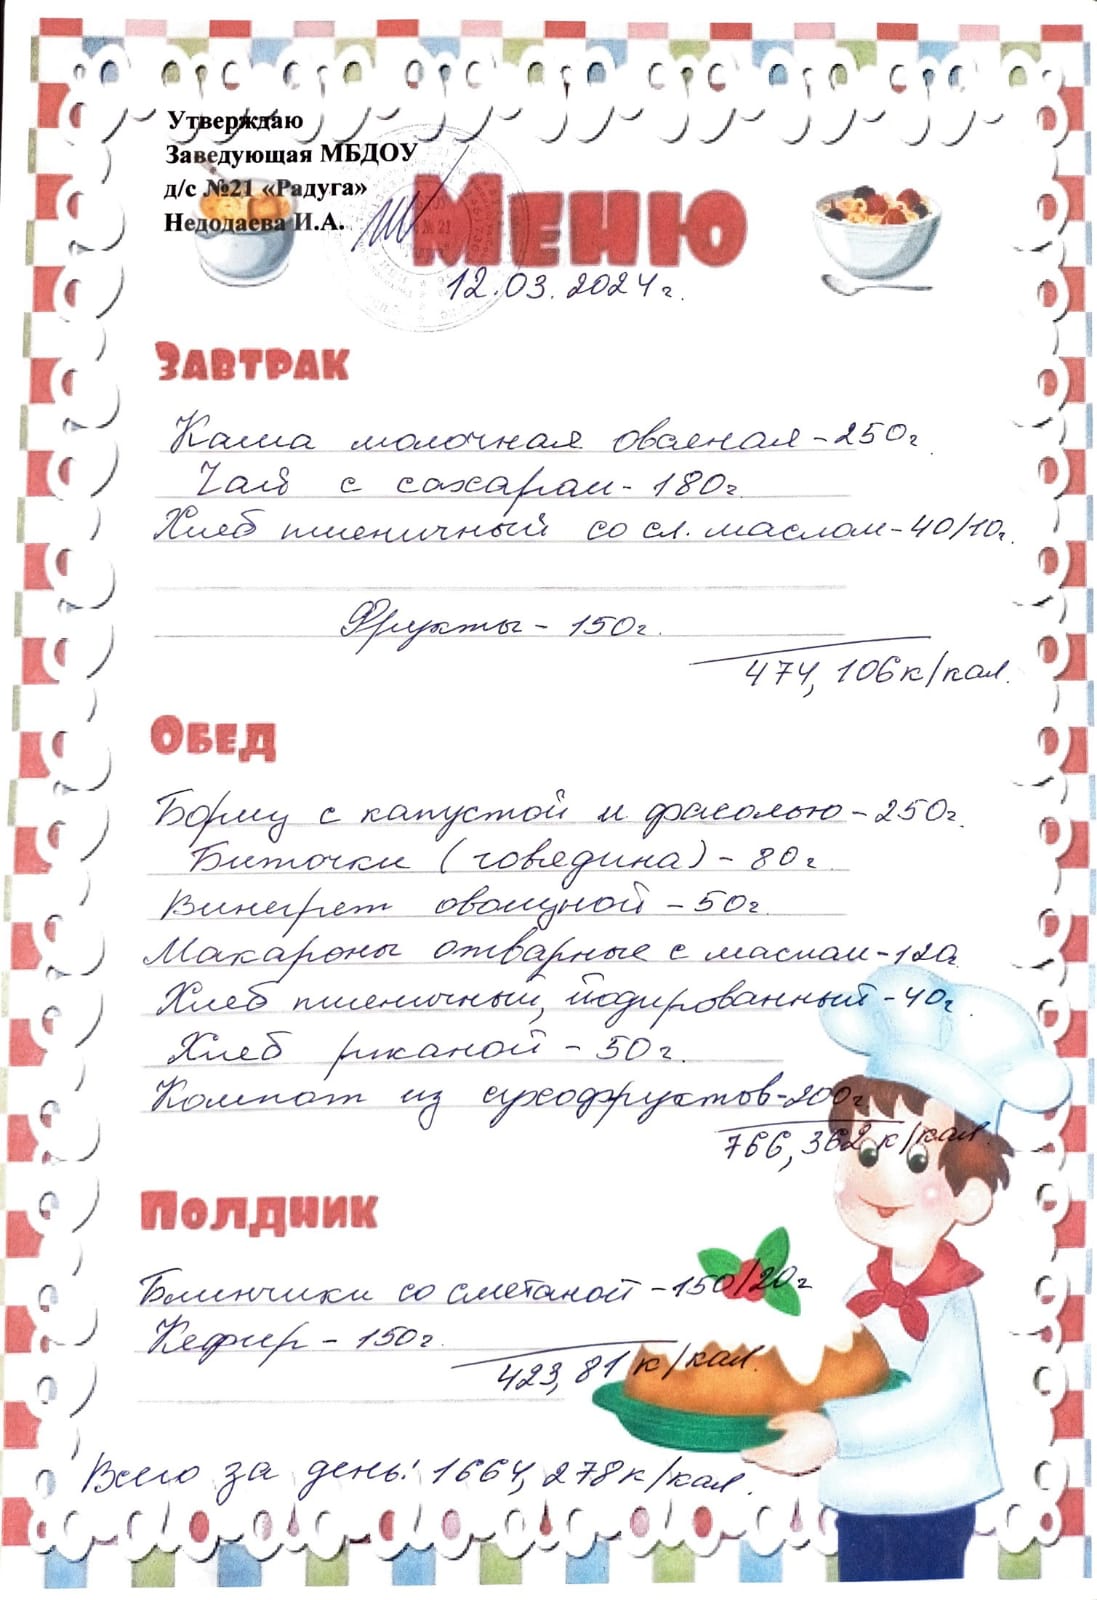 Утверждаю
Заведующая МБДОУ
д/с №21 «Радуга»
Недодаева И.А.
Меню
12.03.2024г.
Завтрак
Каша молочная овсяная-250г
Чай с сахаром-180г
Хлеб пшеничный со сл. маслом-40/10г.
Фрукты-150г.
474,106к/кал.
Обед
Борщ с капустой и фасолью-250г.
Биточки (говядина)-80г.
Винегрет овощной-50г.
Макароны отварные с маслом-120г.
Хлеб пшеничный, йодированный-40г.
Хлеб ржаной-50г.
Компот из сухофруктов-200г
766,362к/кал.
Полдник
Блинчики со сметаной-150/20г
Кефир-150г.
423,81к/кал.
Всего за день: 1664,278к/кал.